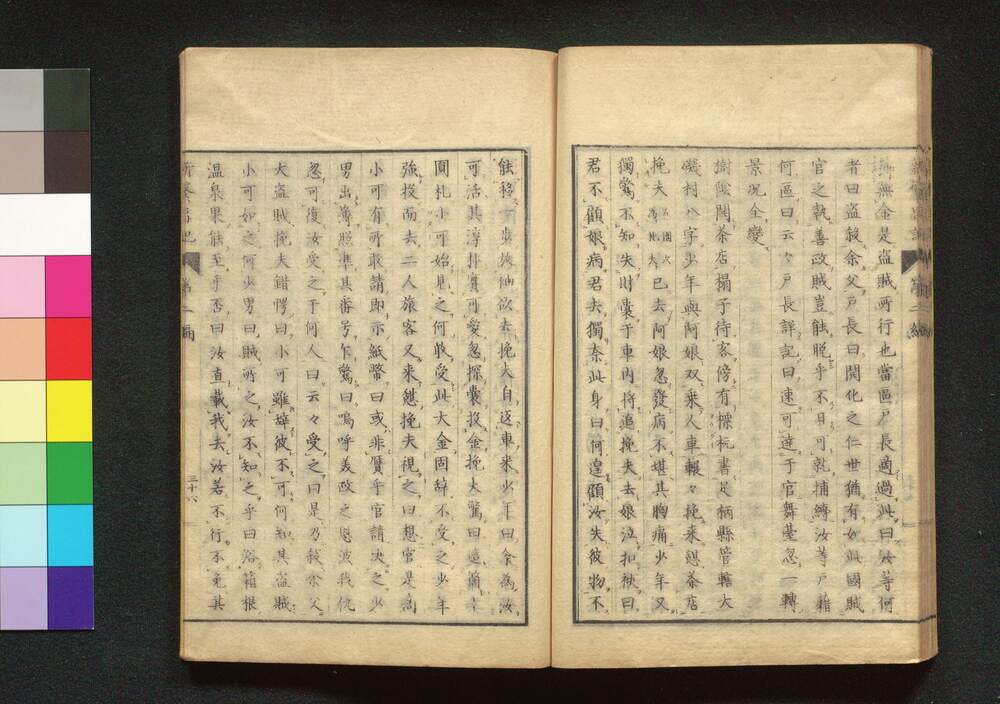 無余是盗賊所行也當區戸長適過此曰汝等何
者曰盗殺余父戸長曰開化之仁世猶有如此國賊
官之執善改賊豈能脱乎不日可就捕縛汝等戸籍
何區曰云々戸長詳記曰速可達于官舞臺忽一轉
景況全變
樹陰開茶店榻子待客傍有標杭書足柄縣管轄大
磯村八字少年與阿娘双乗人車輾々挽来憩茶店
挽夫已去阿娘忽發病不堪其胸痛少年又
獨驚不知失財嚢于車内将追挽夫去娘泣扣袂曰
君不顧娘病君去獨奈此身曰何遑顧汝失彼物不
能移歩放仙欲去挽夫自返車来少年曰余為汝
可活其淳朴實可愛忽探嚢投金挽夫驚曰這箇
圓札小可始見之何敢受此大金固辞不受之少年
強投而去二人旅客又来憩挽夫視之曰想官是
小可有所敢請即示紙幣曰或非贋乎官請决之少
男出簿照準其番号乍驚曰嗚呼
忽可復汝受之于何人曰云々受之曰是乃殺余父
大盗賊挽夫錯愕曰小可雖辞彼不可何知其盗賊
小可如之何少男曰賊所之汝不知之乎曰浴箱根
温泉果能至乎否曰汝直載我去汝若不行不免其
三十六